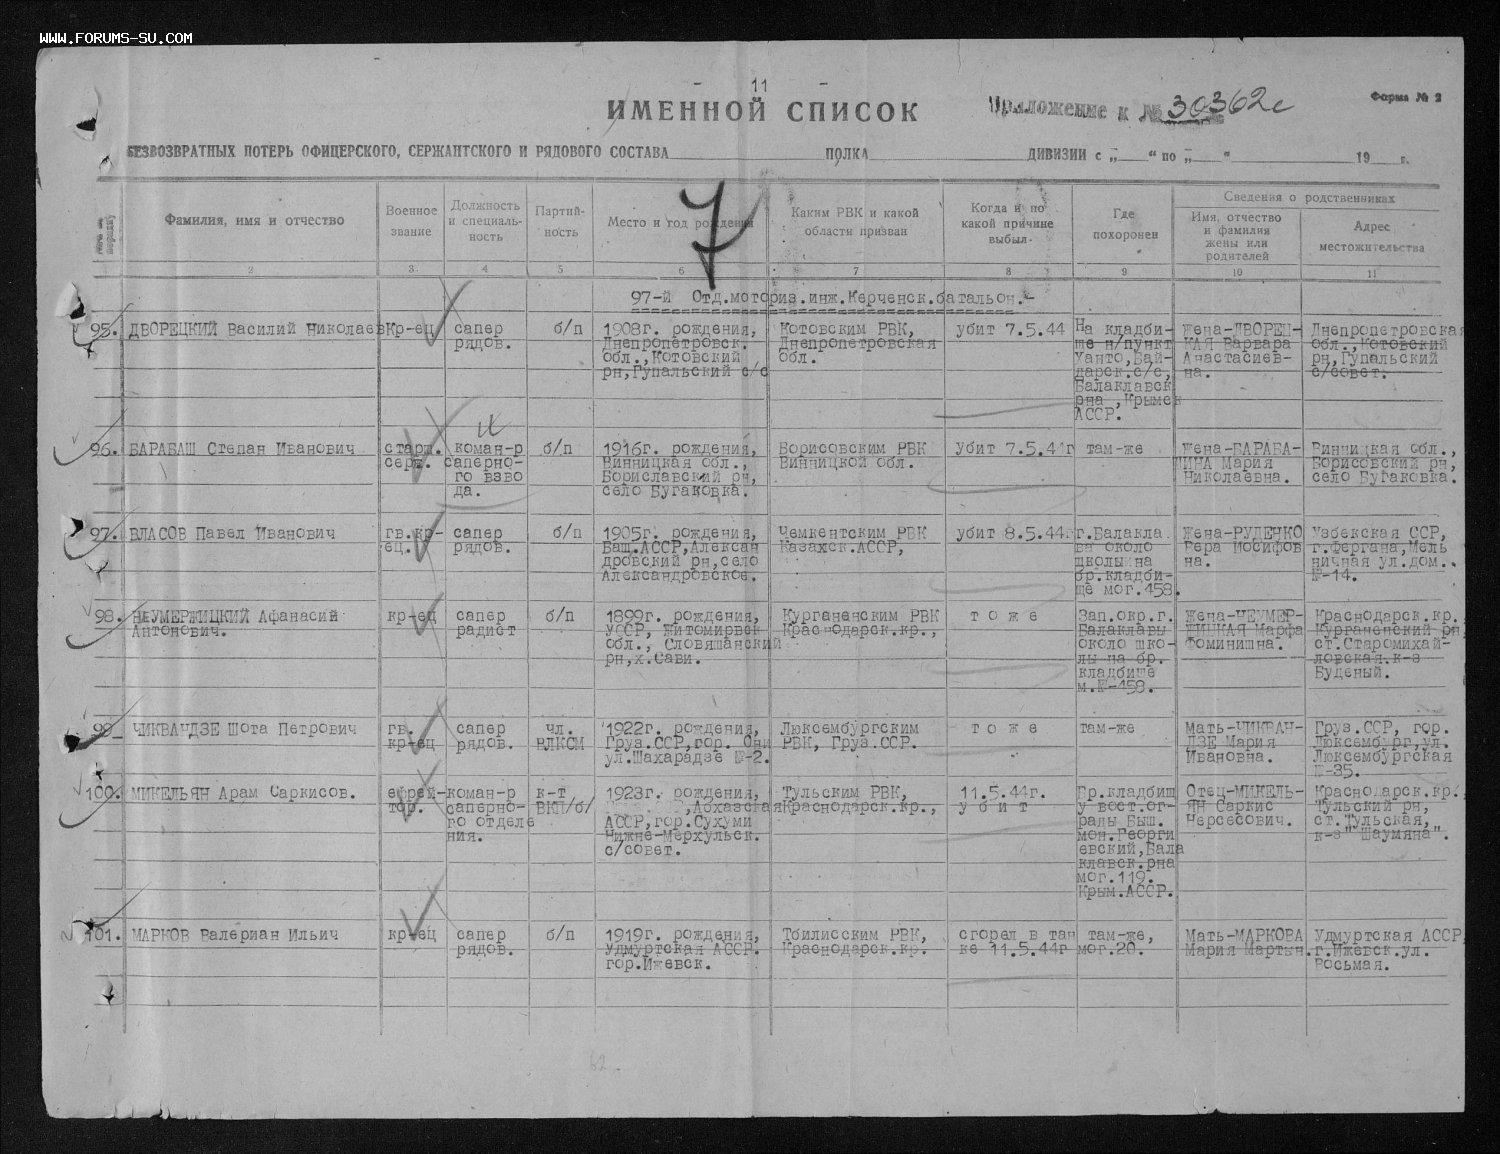 WWW.FORUMS-SU.COM
- 11 -
ИМЕННОЙ СПИСОК
Приложение к № 30362с
Форма № 2
БЕЗВОЗВРАТНЫХ ПОТЕРЬ ОФИЦЕРСКОГО, СЕРЖАНТСКОГО И РЯДОВОГО СОСТАВА ПОЛКА ДИВИЗИИ с „ “ по „ “ 19 г.
7
Фамилия, имя и отчество
Военное
звание
Должность
и специаль-
ность
Партий-
ность
Место и год рождения
Каким РВК и какой
области призван
Когда и по
какой причине
выбыл
Где
похоронен
Сведения о родственниках
Имя, отчество
и фамилия
жены или
родителей
Адрес
местожительства
2 3 4 5 6 7 8 9 10 11
97-й Отд.моториз.инж.Керченск.батальон.-
95. ДВОРЕЦКИЙ Василий Николаев
Кр-ец
сапер
рядов.
б/п
1908г. рождения,
Днепропетровск.
обл.,Котовский
рн,Гупальский с/с
Котовским РВК,
Днепропетровская
обл.
убит 7.5.44
На кладби-
ще н/пункт
Уанто,Бай-
дарск.с/с,
Балаклавск
рна ,Крымск
АССР.
Жена-ДВОРЕЦ-
КАЯ Варвара
Анастасиев-
на.
Днепропетровская
обл.,Котовский
рн,Гупальский
с/совет.
96. БАРАБАШ Степан Иванович
старш.
серж.
коман-р
саперно-
го взво
да.
б/п
1916г. рождения,
Винницкая обл.,
Бориславский рн,
село Бугаковка.
Борисовским РВК
Винницкой обл.
убит 7.5.44г
там-же
Жена-БАРАБА-
ШИНА Мария
Николаевна.
Винницкая обл.,
Борисовский рн,
село Бугаковка.
97. ВЛАСОВ Павел Иванович
гв.кр-
ец.
сапер
рядов.
б/п
1905г. рождения,
Баш.АССР,Алексан
дровский рн,село
Александровское.
Чемкентским РВК
Казахск.АССР,
убит 8.5.44г
г.Балакла
ва около
школы на
бр.кладби-
ще мог.458.
Жена-РУДЕНКО
Вера Иосифов
на.
Узбекская ССР,
г.Фергана,Мель
ничная ул.дом.
№-14.
98. НЕУМЕРЖИЦКИЙ Афанасий
Антонович.
кр-ец
сапер
радист
б/п
1899г. рождения,
УССР, Житомирвск
обл., Словяшанский
рн,х.Сави.
Курганенским РВК
Краснодарск.кр.,
т о ж е
Зап.окр.г.
Балаклавы
около шко-
лы на бр.
кладбише
м.№-458.
Жена-НЕУМЕР-
ЖИЦКАЯ Марфа
Фоминишна.
Краснодарск.кр.
Курганенский рн,
ст.Старомихай-
ловская.к-з
Буденый.
99. ЧИКВАИДЗЕ Шота Петрович
гв.
кр-ец
сапер
рядов.
чл.
ВЛКСМ
1922г. рождения,
Груз.ССР,гор. Они
ул.Шахарадзе №-2.
Люксембургским
РВК, Груз.ССР.
т о ж е
там-же
Мать-ЧИКВАИ-
ДЗЕ Мария
Ивановна.
Груз.ССР, гор.
Люксембург,ул.
Люксембургская
№-35.
100. МИКЕЛЬЯН Арам Саркисов.
ефрей-
тор.
коман-р
саперно-
го отделе
ния.
к-т
ВКП/б/
1923г. рождения,
,Абхазская
АССР,гор.Сухуми
Нижне-Мерхульск.
с/совет.
Тульским РВК,
Краснодарск.кр.,
11.5.44г.
у б и т
Гр.кладбищ
у вост.ог-
рады Быш.
мон.Георги
евский,Бала
клавск.рна
мог.119.
Крым.АССР.
Отец-МИКЕЛЬ-
ЯН Саркис
Нерсесович.
Краснодарск.кр.,
Тульский рн,
ст.Тульская,
к-з "Шаумяна".
101. МАРКОВ Валериан Ильич
кр-ец
сапер
рядов.
б/п
1919г. рождения,
Удмуртская АССР.
гор.Ижевск.
Тбилисским РВК,
Краснодарск.кр.
сгорел в тан
ке 11.5.44г
там-же,
мог.20.
Мать-МАРКОВА
Мария Мартын.
Удмуртская АССР,
г.Ижевск.ул.
Восьмая.
62